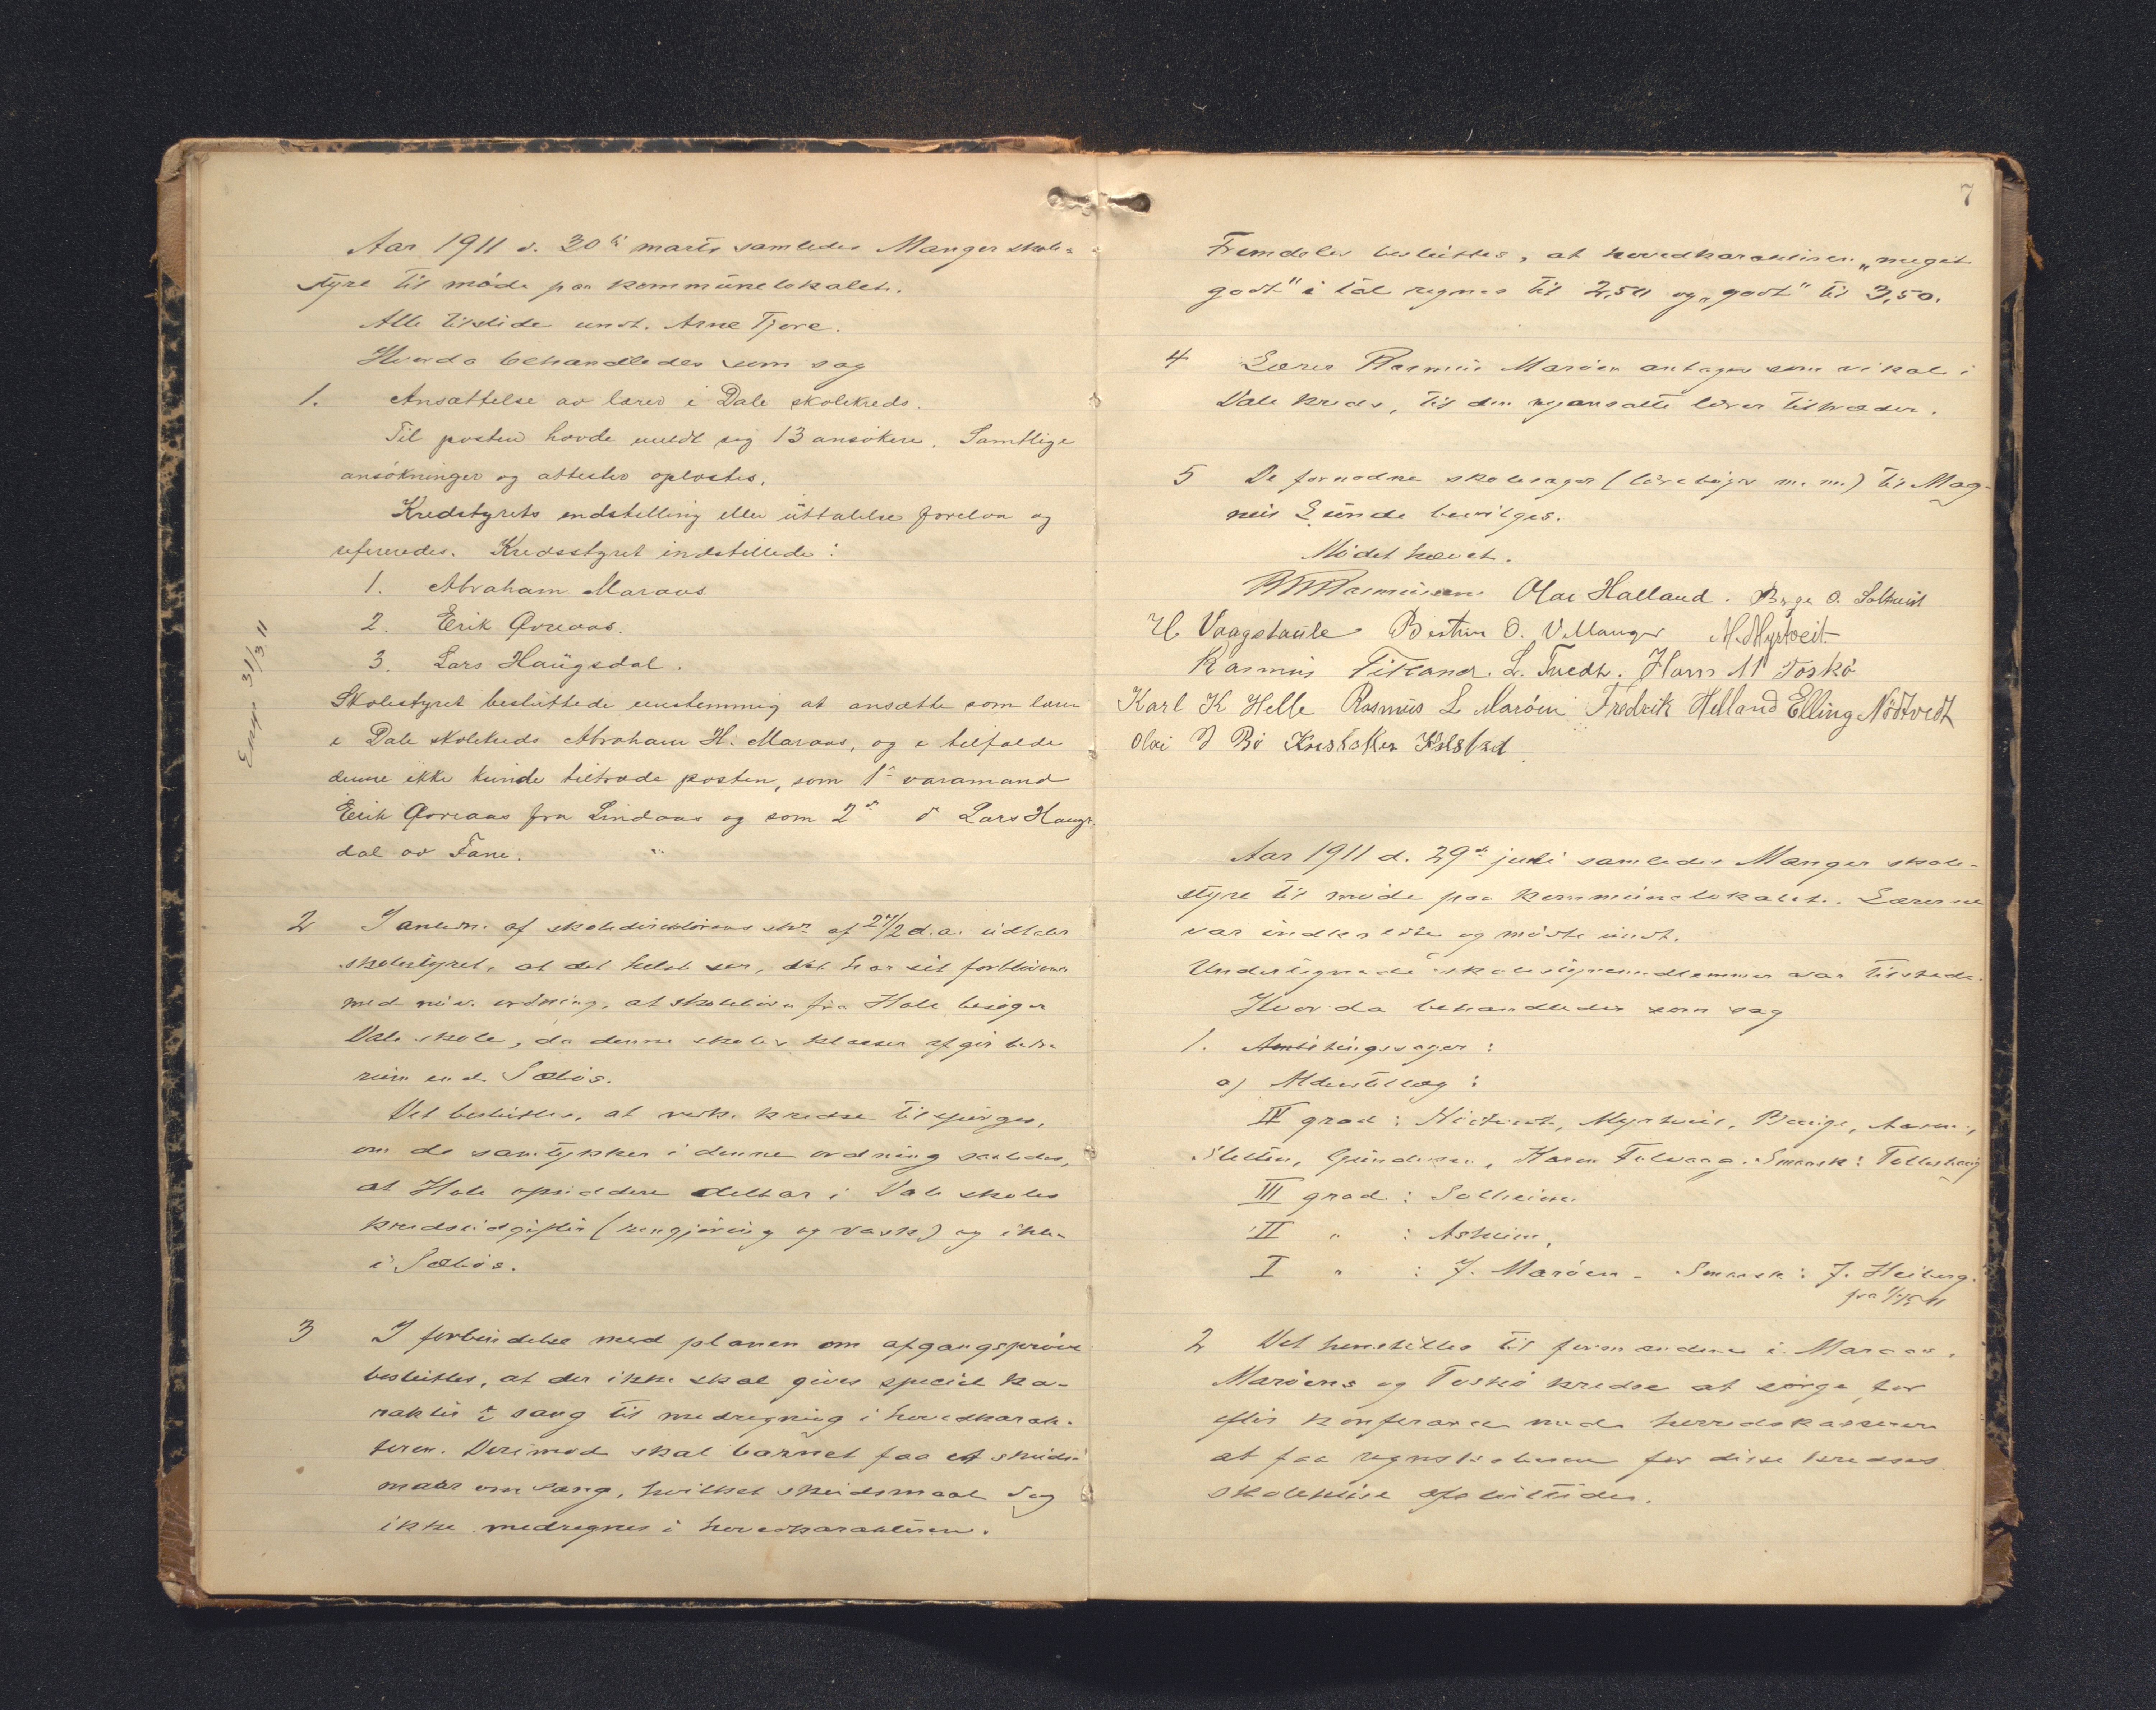 Aar 1911 d. 30te marts samledes Manger skole-
styre til möde paa kommünelokalet.
Alle tilstede undt. Arne Tjore.
Hvorda behandledes som sag
1. Ansættelse av lærer i Dale skolekreds.
Til posten havde meldt sig 13 ansökere. Samtlige
ansökninger og attester oplæstes.
Kredstyrets indstilling eller üttalelse forelaa og
refereredes. Kredsstyret indstillede:
1. Abraham Maraas
2. Erik Qvreaas.
3. Lars Haügsdal.
Skolestyret beslüttede enstemmig at ansætte som lærer
i Dale skolekreds Abraham H. Maraas, og i tilfælde
denne ikke künde tiltræde posten, som 1ste varamand
Erik Qvreaas fra Lindaas og som 2den do Lars Haugs-
dal av Fane.
Ensp. 31/3 11
2 I anledn. af skoledirektörens skr. af 27/2 d.a. üdtaler
skolestyret, at det helst ser, det har sit forblivende
med nüv. ordning, at skolebörn fra Hole besöger
Dale skole, da denne skoles klasser afgir bedre
rüm end Sæbös.
Det beslüttes, at vedk. kredse tilspörges,
om de samtykker i denne ordning saaledes,
at Hole opsiddere deltar i Dale skoles
kredsüdgifter (rengjöring og vask) og ikke
i Sæbös.
3 I forbindelse med planen om afgangspröve
beslüttes, at der ikke skal gives speciel ka-
rakter i sang til medregning i hovedkarak-
teren. Derimod skal barnet faa et sküds-
maal om sang, hvilket sküdsmaal dog
ikke medregnes i hovedkarakteren.
7
Fremdeles beslüttes, at hovedkarakteren „meget
godt" i tal regnes til 2,50 og „godt" til 3,50.
4 Lærer Rasmüs Maröen antages som vikar i
Dale kreds, til den nyansatte lærer tiltræder.
5 De fornødne skolesager (lærebøger m. m.) til Mag-
nüs Sünde bevilges.
Mödet hævet.
Rasmüssen Olai Halland. Børge O. Solheim
H Vaagstaüle Bertin O. V Manger M. Myrtveit
Rasmüs Titland. L. Tvedt. Hans M Toskö
Karl K Helle Rasmüs L Maröen Fredrik Helland Elling Nödtvedt
Olai J Bö Kristoffer Kolstad
Aar 1911 d. 29de juli samledes Manger skole-
styre til möde paa kommünelokalet. Lærerne
var indkaldte og mödte ündt.
Undertegnede skolestyremedlemmer var tilstede.
Hvorda behandledes som sag
1. Anvisningssager:
a) Alderstillæg:
IV grad: Nödtvedt, Myrtveit, Bauge,
Sletten, Gündersen, Karen Folvaag. Smaask: Tellesh
III grad: Solheim
II " : Askeim,
I " : J. Maröen. Smaask: J. Heiberg.
fra 1/5 11
2 Det henstilles til formændene i Maraas,
Maröens og Toskö kredse at sörge for
efter konferance med herredskasserer
at faa regnskaberne for disse kredses
skolehüse afslüttede.